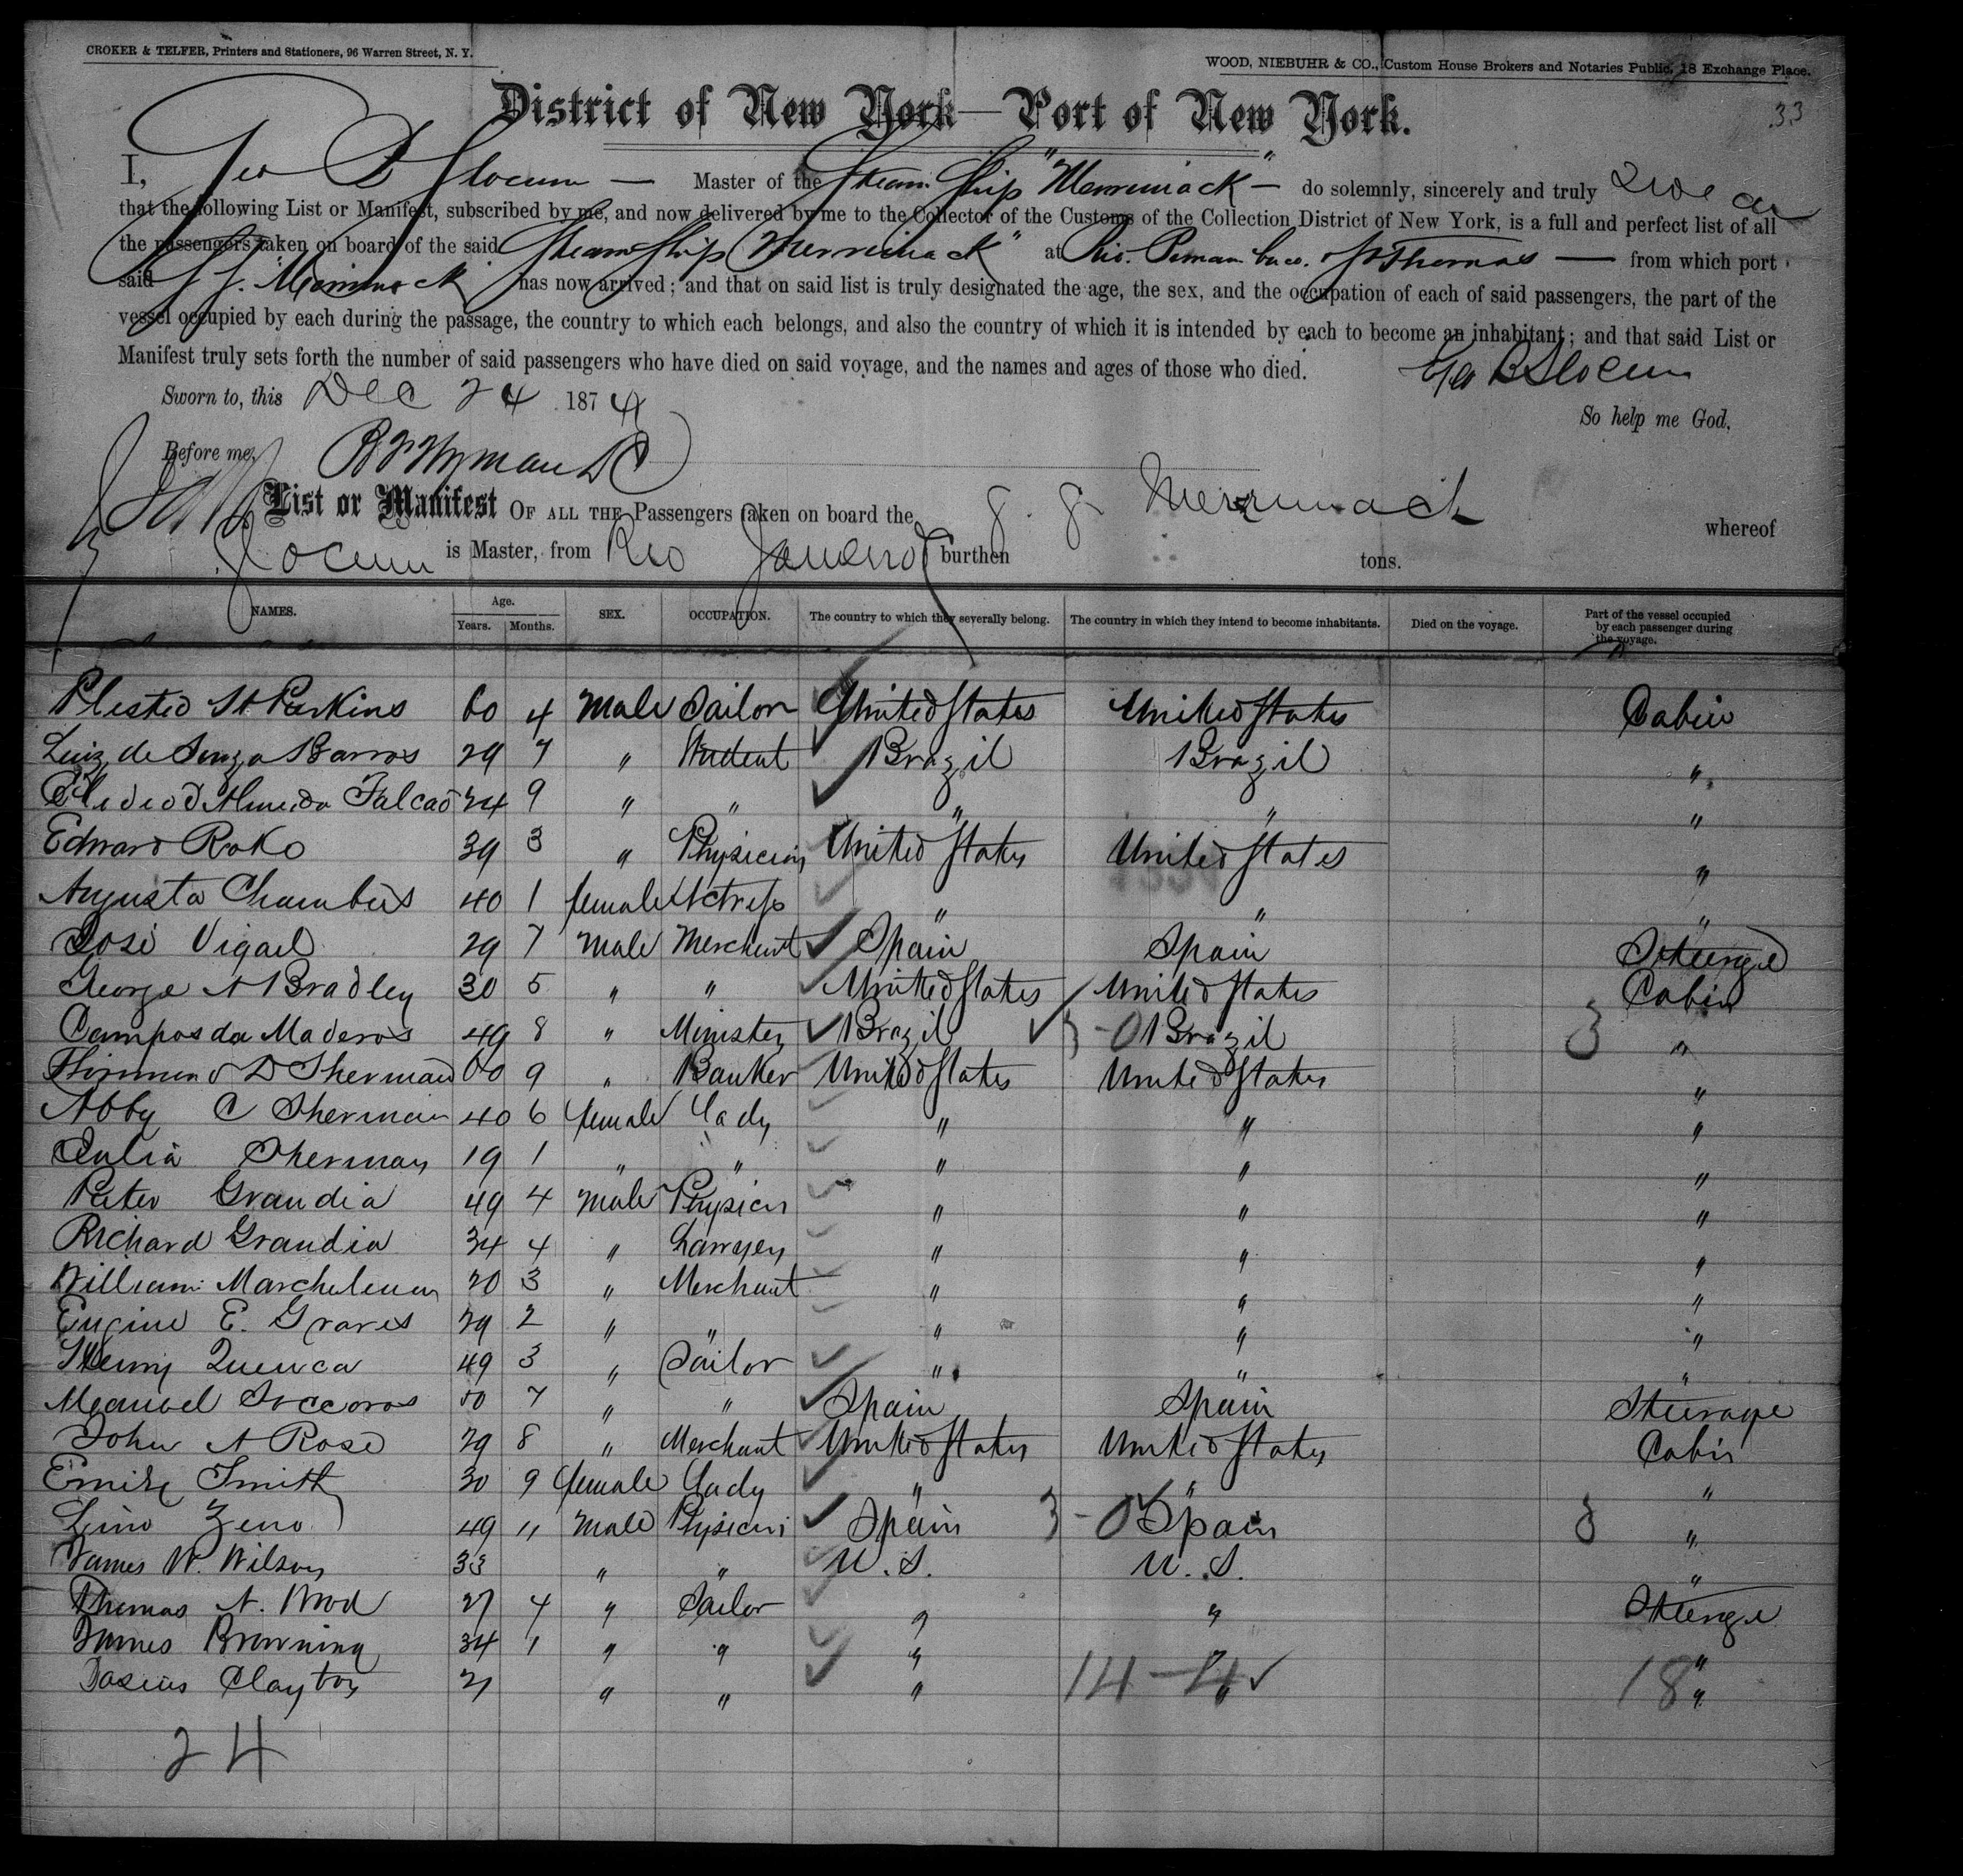 CROKER & TELFER, Printers and Stationers, 96 Warren Street, N. Y.
WOOD, NIEBUHR & CO., Custom House Brokers and Notaries Public, 18 Exchange Place.
33
District of New York—Port of New York.
I, Geo B Slocum — Master of the Steam Ship "Merrimack" — do solemnly, sincerely and truly swear
that the following List or Manifest, subscribed by me, and now delivered by me to the Collector of the Customs of the Collection District of New York, is a full and perfect list of all
the passengers taken on board of the said Steam Ship Merrimack" at Rio. Pernambuco. St Thomas — from which port
said S. S. Merrimack has now arrived; and that on said list is truly designated the age, the sex, and the occupation of each of said passengers, the part of the
vessel occupied by each during the passage, the country to which each belongs, and also the country of which it is intended by each to become an inhabitant; and that said List or
Manifest truly sets forth the number of said passengers who have died on said voyage, and the names and ages of those who died.
Geo B Slocum
Sworn to, this Dec 24 1874
So help me God,
Before me, Wyman DC
List or Manifest OF ALL THE Passengers taken on board the S. S. Merrimack whereof
Slocum is Master, from Rio Janeiro burthen tons.
NAMES. Age. Years. Months. SEX. OCCUPATION. The country to which they severally belong. The country in which they intend to become inhabitants. Died on the voyage. Part of the vessel occupied by each passenger during the voyage.
Perkins 60 4 Male Sailor United States United States Cabin
Luiz de Souza Barros 29 7 " Student Brazil Brazil "
Almeida Falcao 24 9 " " " " "
Edward Roko 39 3 " Physician United States United States "
Augusta Chambers 40 1 female Actress " " "
José Vigail 29 7 Male Merchant Spain Spain Steerage
George A Bradley 30 5 " " United States United States Cabin
Campos da Maderos 49 8 " Minister Brazil 3 - 0 Brazil 3 "
D Sherman 60 9 " Banker United States United States "
Abby C Sherman 40 6 female Lady " " "
Julia Sherman 19 1 " " " " "
Peter Grandia 49 4 Male Physicn " " "
Richard Grandia 34 4 " Lawyer " " "
William 20 3 " Merchant " " "
Eugine E. Graves 29 2 " " " " "
Henry Quenca 49 3 " Sailor " " "
Manuel Soccoros 50 7 " " Spain Spain Steerage
John A Rose 29 8 " Merchant United States United States Cabin
Emily Smith 30 9 female Lady " " "
Lino Zeno 49 11 Male Physicn Spain 3 - 0 Spain 3 "
James W. Wilson 33 " " U. S. U. S. "
Thomas A. Wood 27 4 " Sailor " " Steerage
James Browning 34 1 " " " " "
Clayton 21 " " " " "
14 - 4 18
24